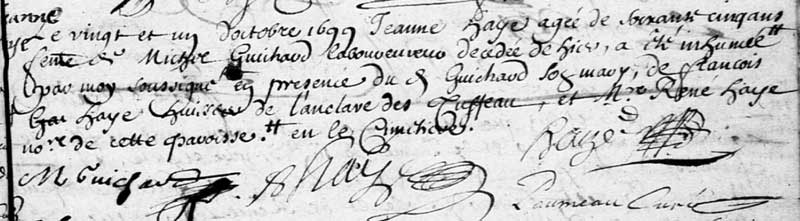 Le vingt et un d'octobre 1699 Jeanne Haye agée de soixante cinq ans
feme de Michel Guichard laboureur decedée de hier, a été inhumée
par moy soussigné en presence du d Guichard son mary, de francois
haye de l'anclave des et Mre René Haye
nore de cette paroisse en le Cimetiere.
Haye
M Guichard Haye
Paumeau Curé